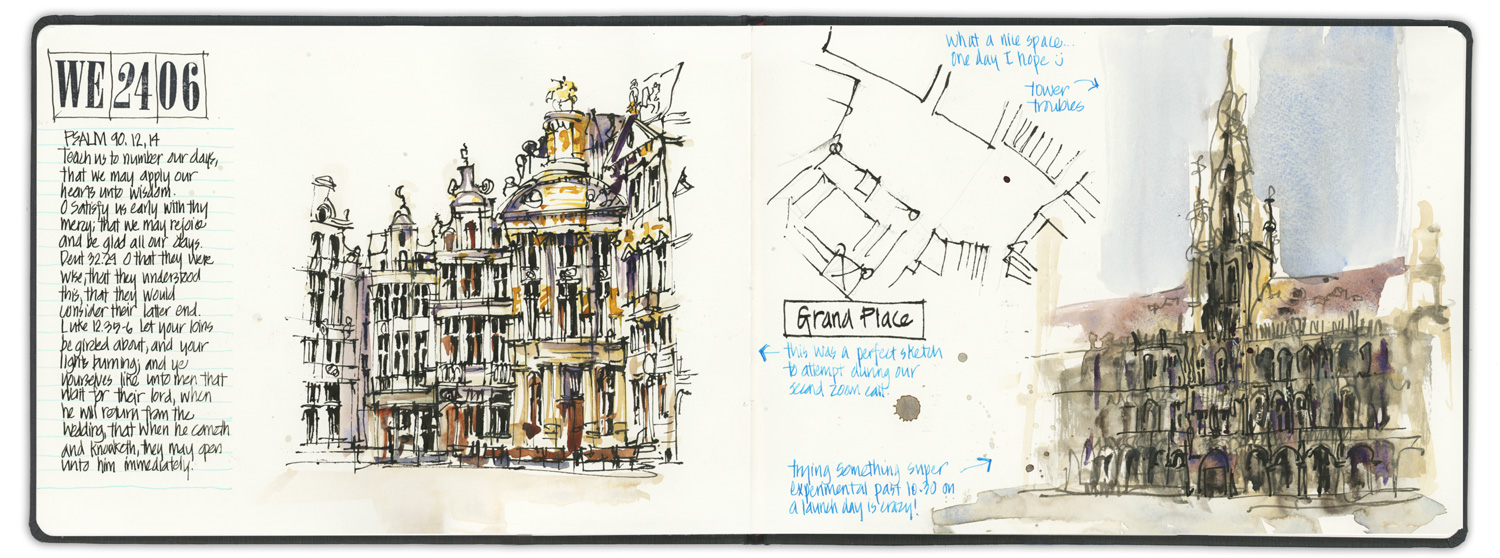 WE 24 06
PSALM 90. 12, 14
Teach us to number our days,
that we may apply our
hearts unto wisdom.
O satisfy us early with thy
mercy; that we may rejoice
and be glad all our days.
Deut 32:29 O that they were
wise, that they understood
this, that they would
consider their latter end.
Luke 12.35-6 Let your loins
be girded about, and your
lights burning; and ye
yourselves like unto men that
wait for their lord, when
he will return from the
wedding, that when he cometh
and knocketh, they may open
unto him immediately.
What a nice space...
One day I hope
tower
troubles
Grand Place
this was a perfect sketch
to attempt during our
second zoom call.
trying something super
experimental past 10.30 on
a launch day is crazy!